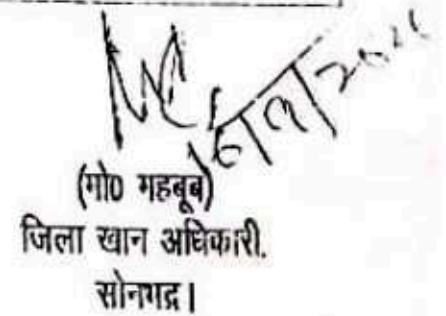 (मो0 महबूब)
जिला खान अधिकारी.
सोनभद्र।